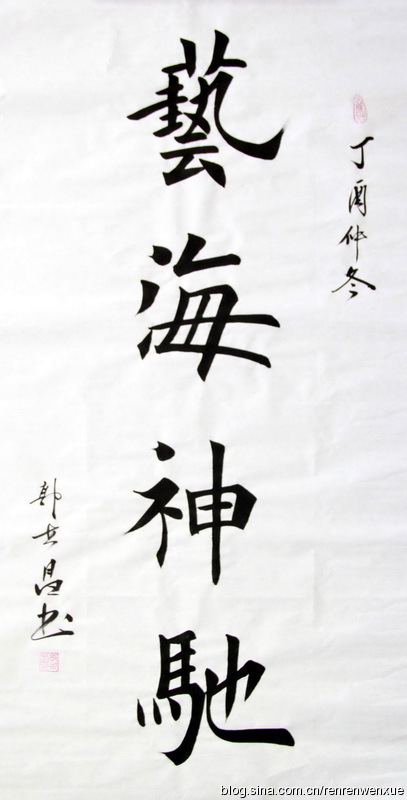 丁酉仲冬
藝海神馳
郭世昌书
blog.sina.com.cn/renrenwenxue